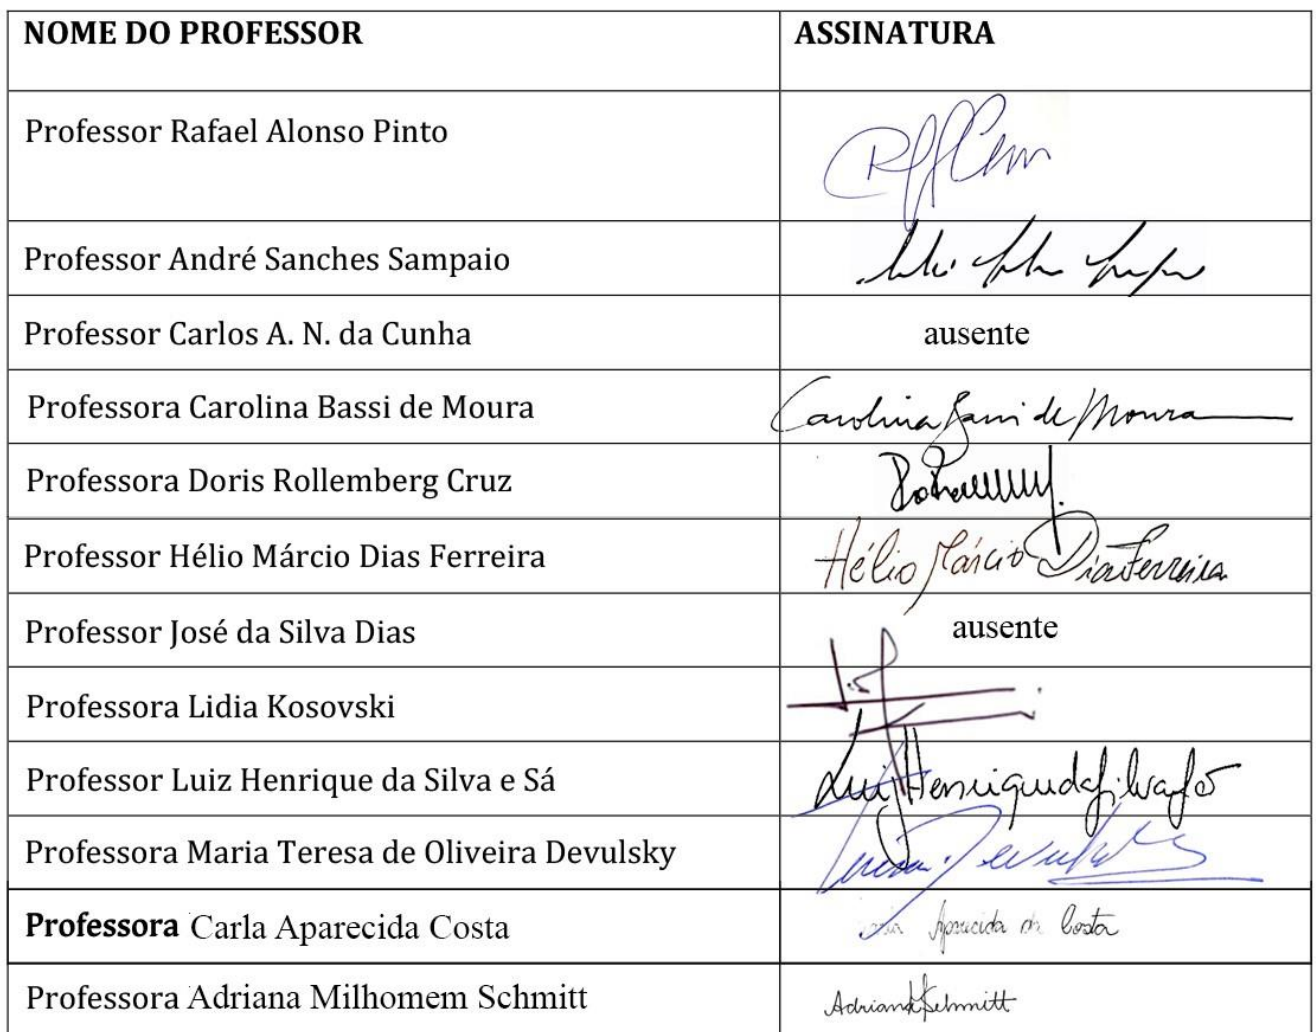 NOME DO PROFESSOR ASSINATURA
Professor Rafael Alonso Pinto
Professor André Sanches Sampaio
Professor Carlos A. N. da Cunha ausente
Professora Carolina Bassi de Moura Carolina Bassi de Moura
Professora Doris Rollemberg Cruz
Professor Hélio Márcio Dias Ferreira Hélio Márcio Dias Ferreira
Professor José da Silva Dias ausente
Professora Lidia Kosovski
Professor Luiz Henrique da Silva e Sá Luiz Henrique da Silva e Sá
Professora Maria Teresa de Oliveira Devulsky
Professora Carla Aparecida Costa Aparecida da Costa
Professora Adriana Milhomem Schmitt Adriana Schmitt